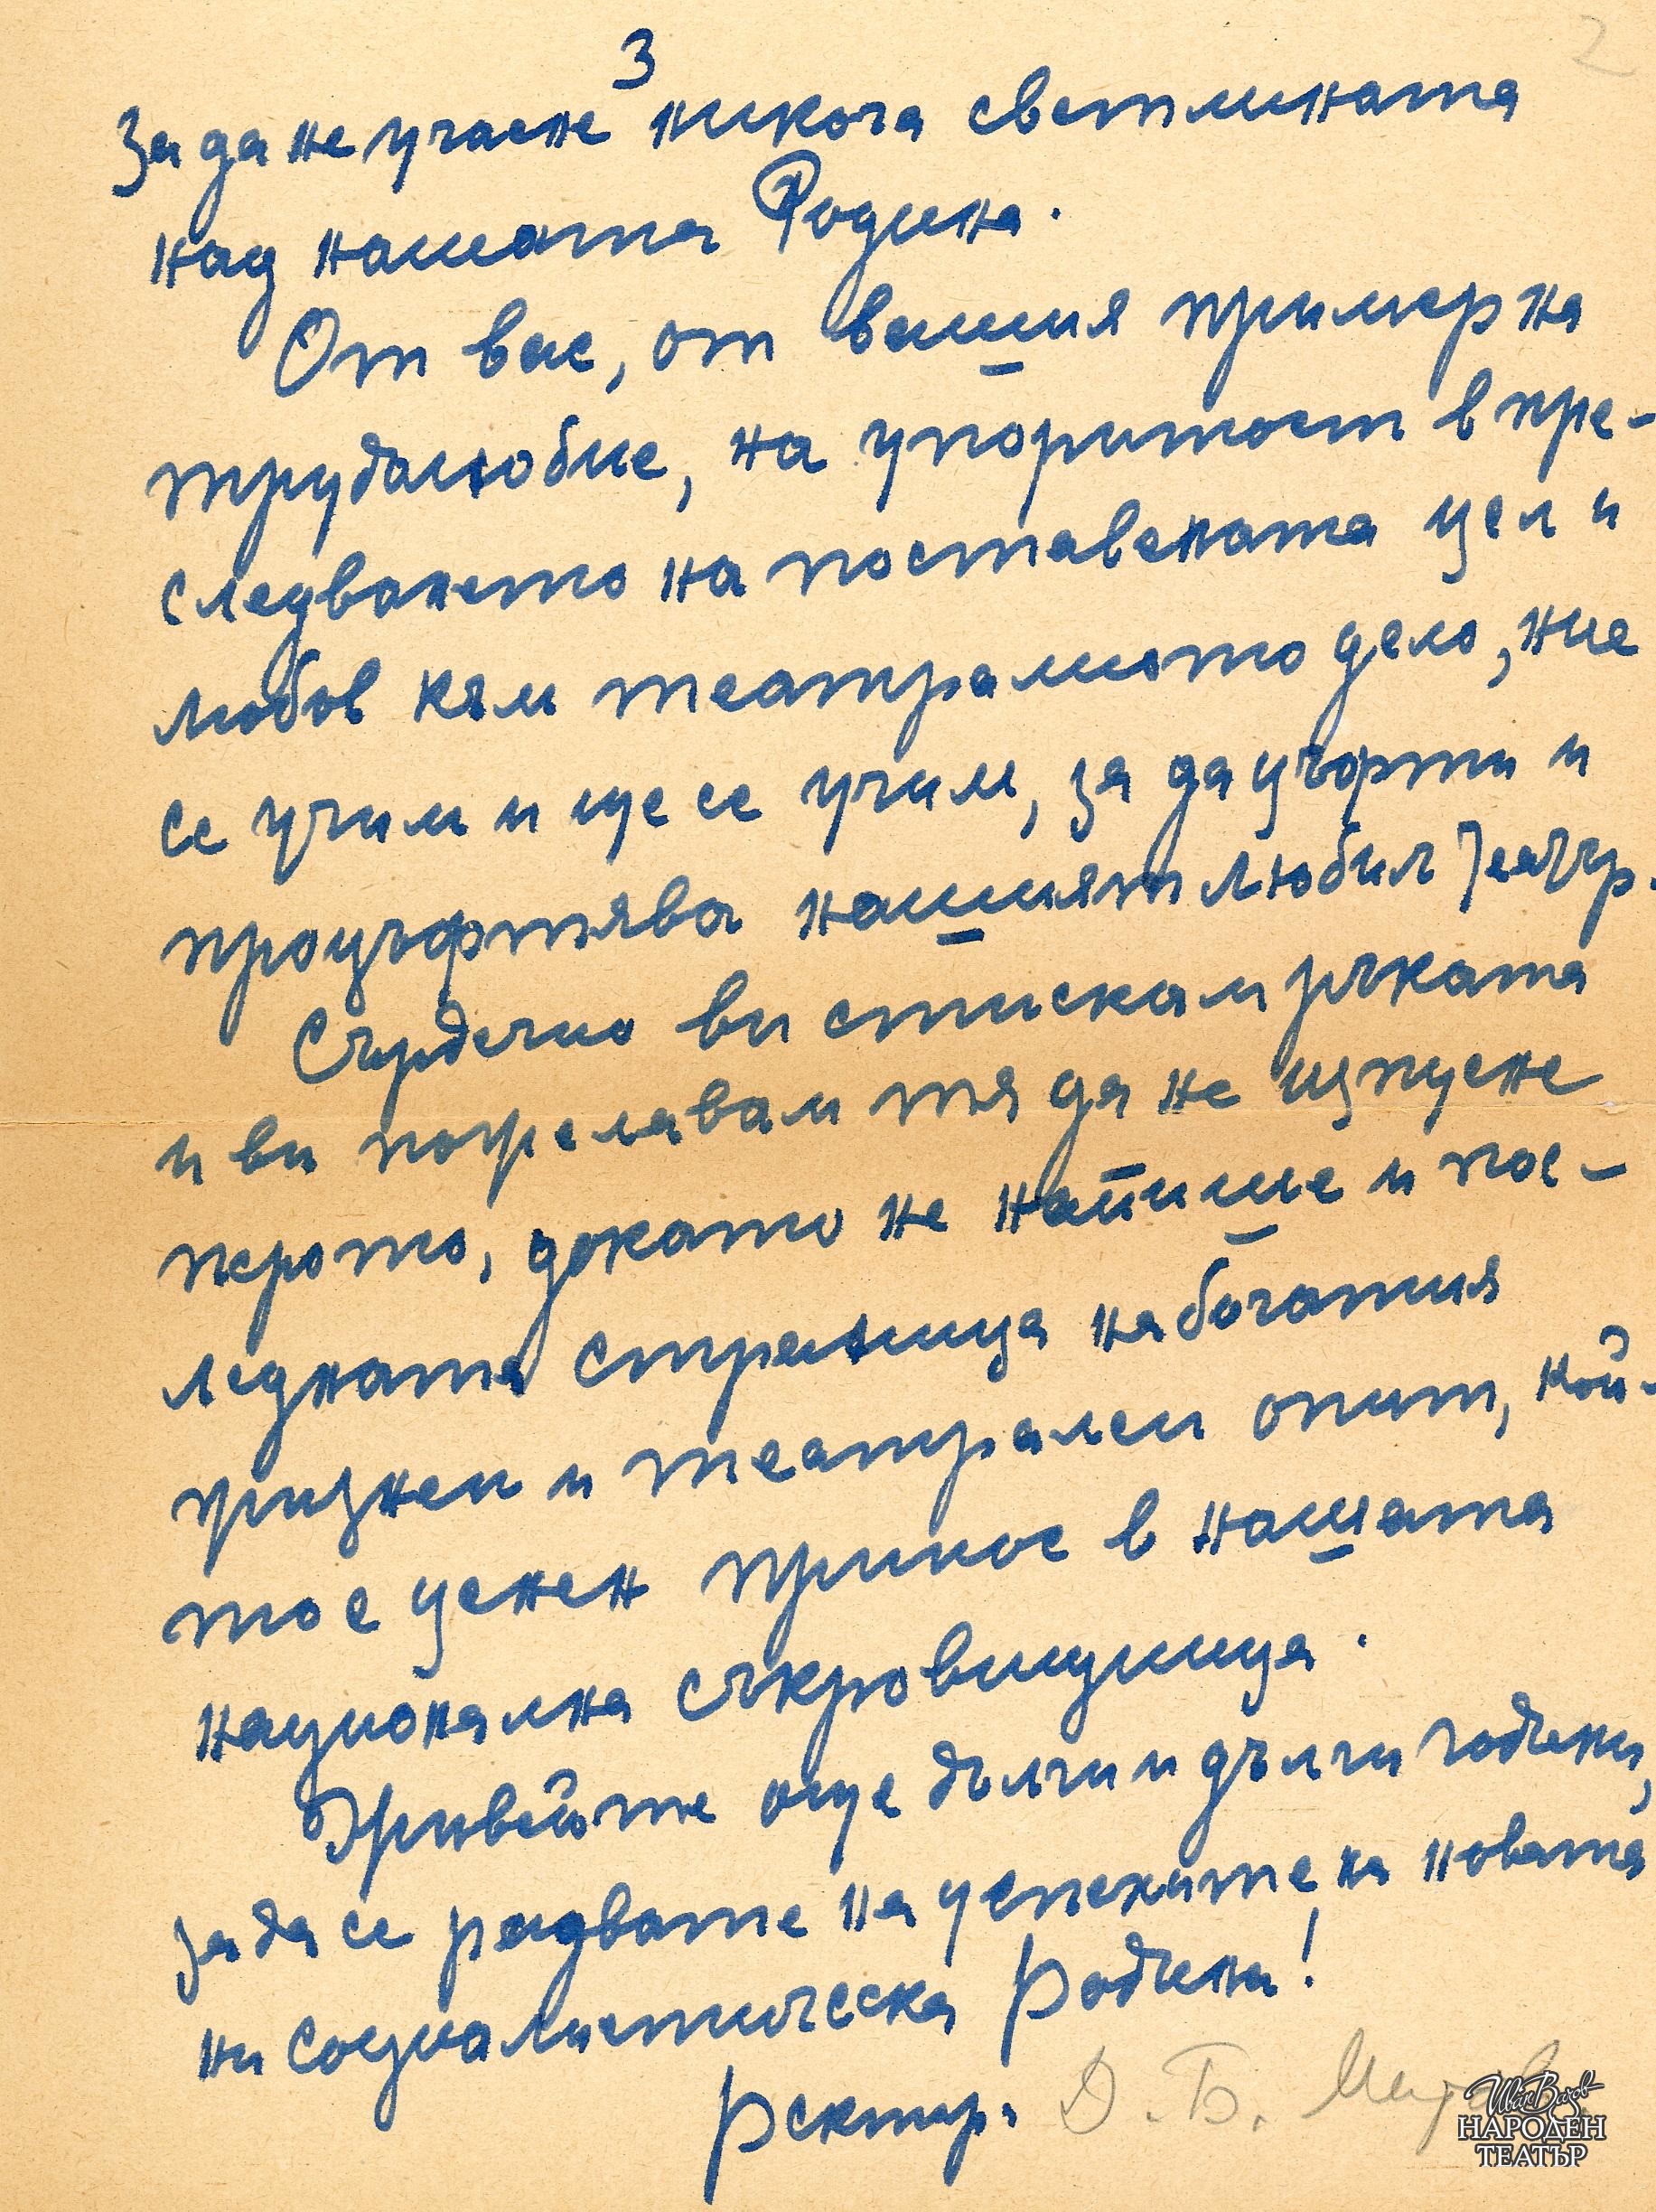 3
2
За да не угасне никога светлината
над нашата Родина.
От вас, от вашия пример на
трудолюбие, на упоритост в пре-
следването на поставената цел и
любов към театралното дело, ние
се учим и ще се учим, за да цъфти и
процъфтява нашият любим Театър.
Сърдечно ви стискам ръката
и ви пожелавам тя да не изпусне
перото, докато не напише и пос-
ледната страница на богатия
жизнен и театрален опит, кой-
то е ценен принос в нашата
национална съкровищница.
Живейте още дълги и дълги години,
за да се радвате на успехите на новата
ни социалистическа Родина!
Ректор: Д. Б.
Иван Вазов
НАРОДЕН
ТЕАТЪР